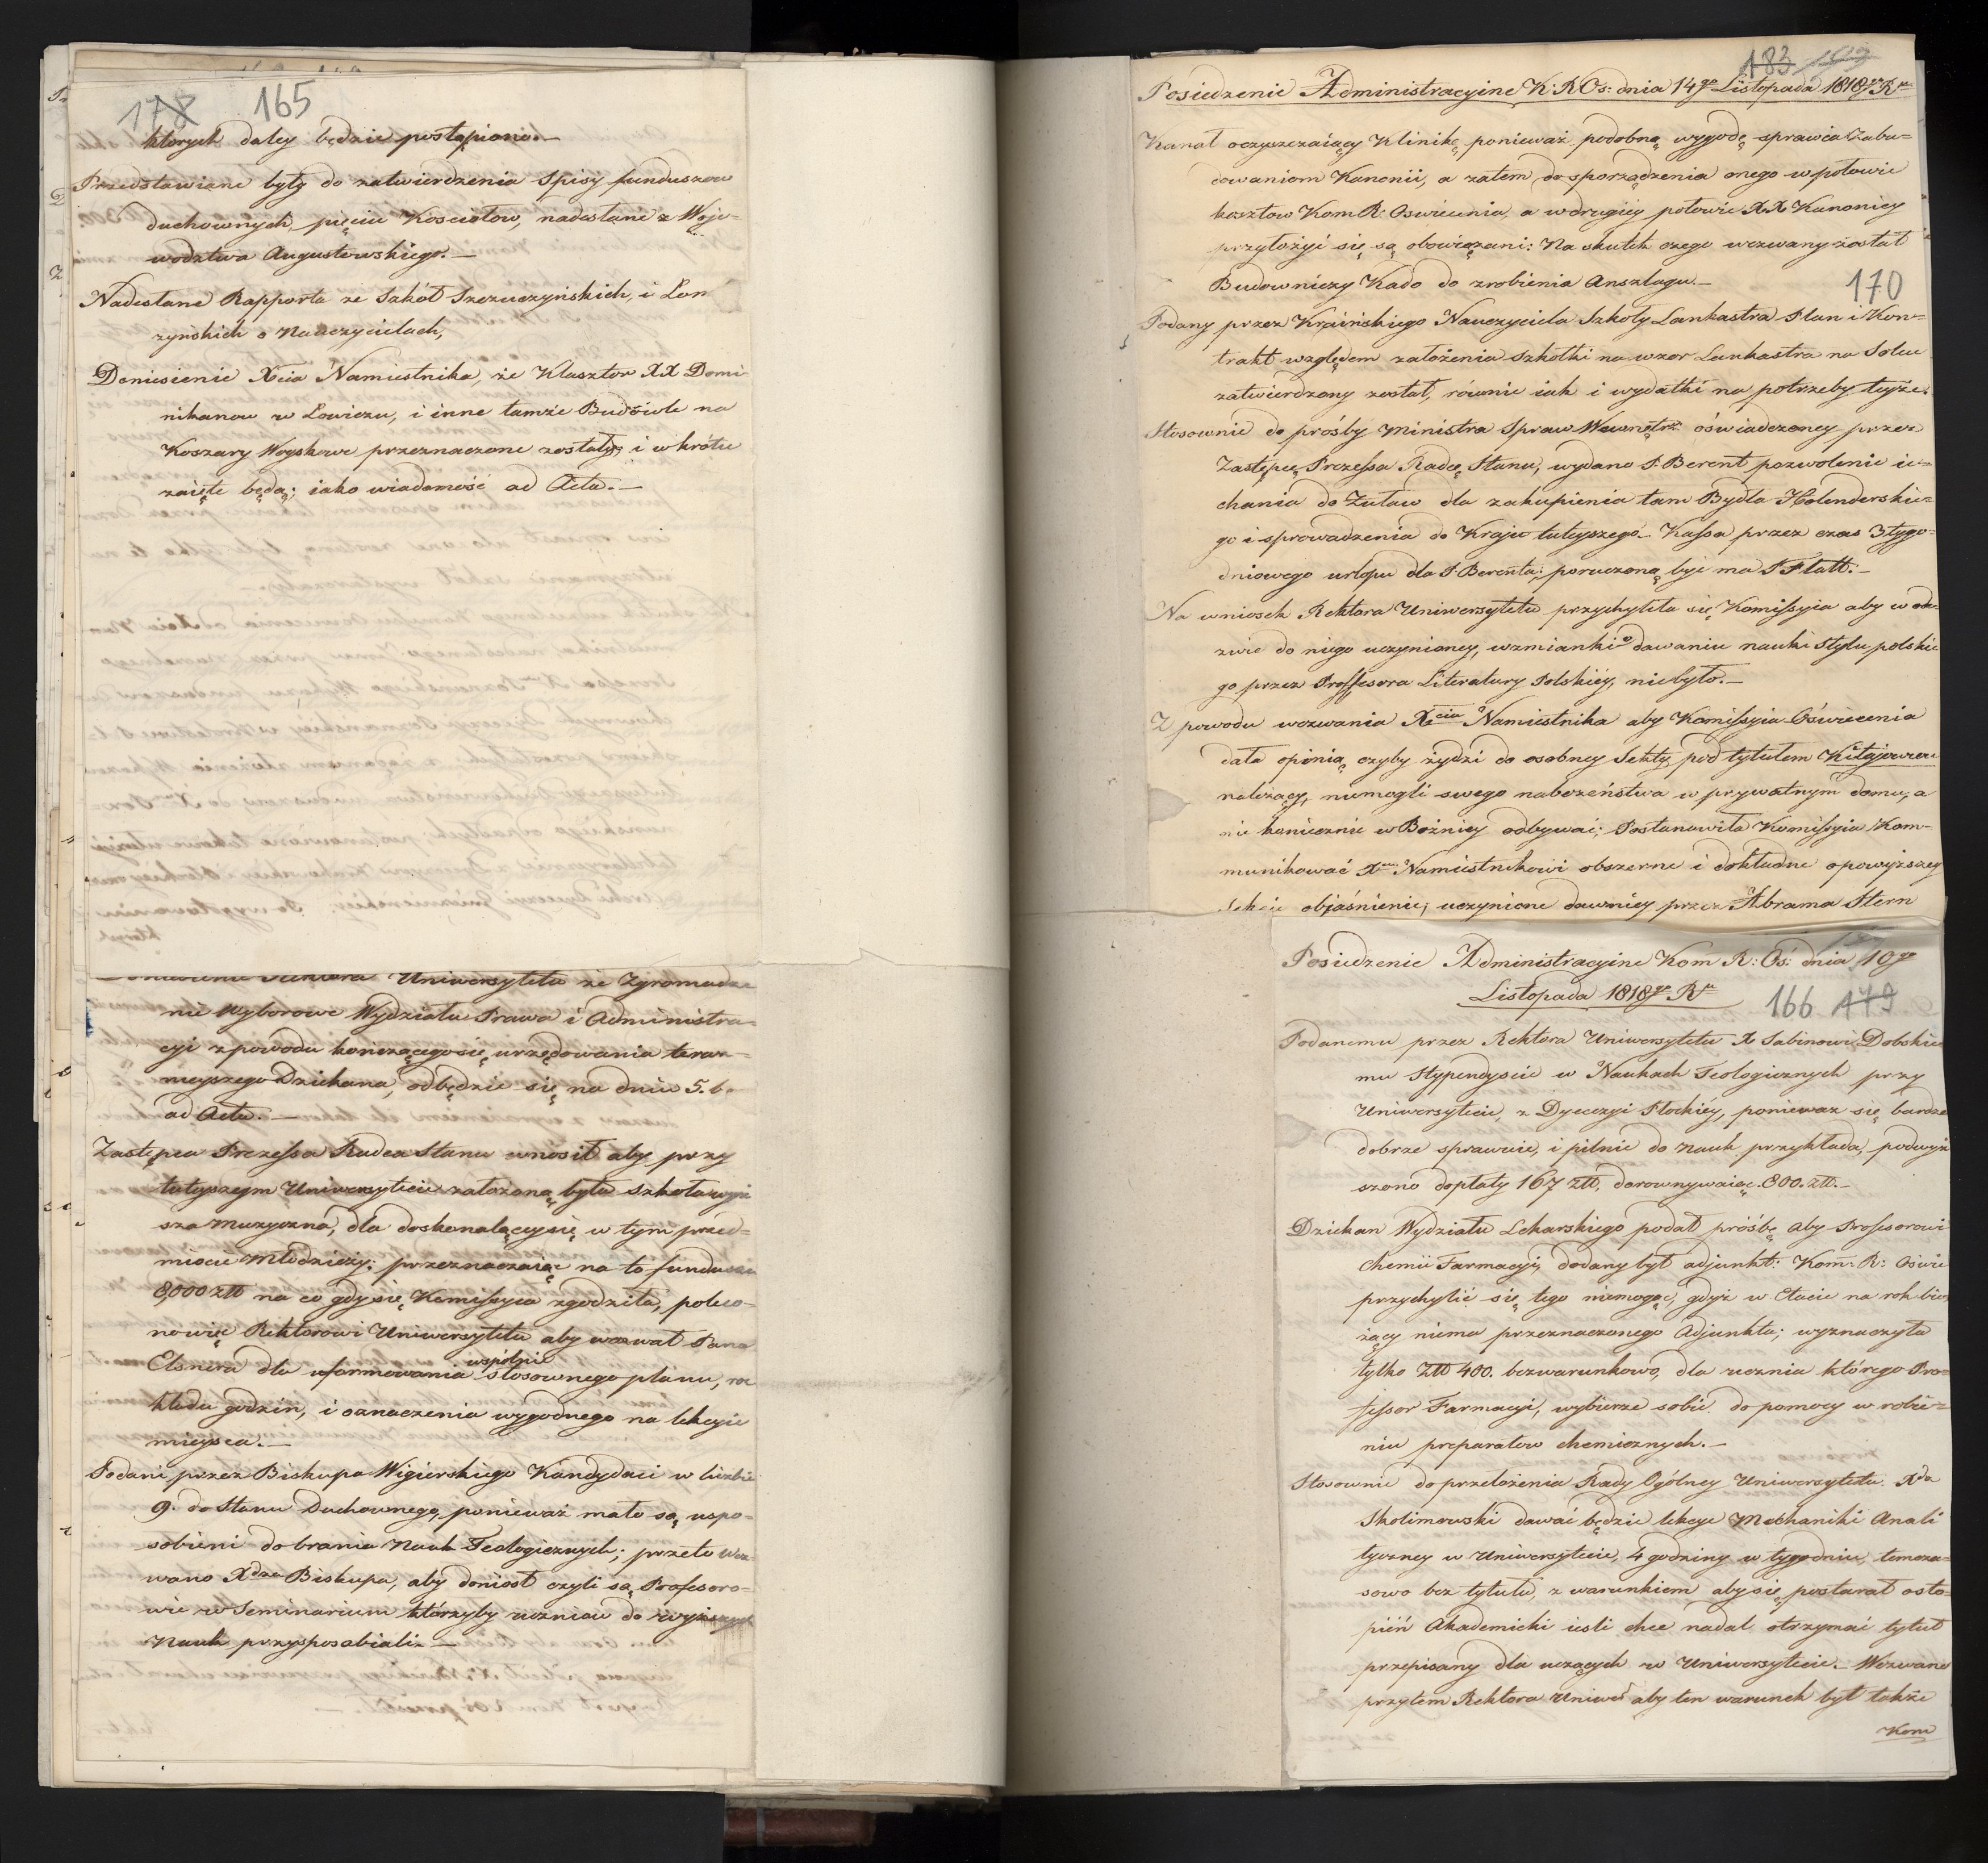 178 165
których daley będzie postąpiono.—
Przedstawiane były do zatwierdzenia Spisy funduszow
duchownych pięciu Kosciołow, nadesłane z Woje-
wodztwa Augustowskiego.—
Nadesłane Rapporta ze Szkół Szczuczyńskich, i Łom
zyńskich o Nauczycielach,
Doniesienie Xcia Namiestnika, że Klasztor XX Domi-
nikanow w Łowiczu, i inne tamże Budowle na
Koszary Woyskowe przeznaczone zostały, i wkrótce
zaięte będą; iako wiadomość ad Acta.—
Rektora Uniwersytetu że Zgromadze
nie Wyborowe Wydziału Prawa i Administra-
cyi z powodu kończącego się urzędowania teraz-
nieyszego Dziekana, odbędzie się na dniu 5. b.
ad Acta.—
Zastępca Prezessa Radca Stanu wnosił aby przy
tuteyszym Uniwersytecie założoną była Szkoła wyż
sza Muzyczna, dla doskonalącey się w tym przed-
miocie Młodzieży; przeznaczaiąc na to fundusz
8,000 złł na co gdy się Kommissyia zgodziła, poleco-
no więc Rektorowi Uniwersytetu aby wezwał Pana
Elsnera dla uformowania wspólnie stosownego planu, roz
kładu godzin, i oznaczenia wygodnego na lekcyie
mieysca.—
Podani przez Biskupa Wigierskiego Kandydaci w liczbie
9. do Stanu Duchownego, ponieważ mało są uspo-
sobieni do brania Nauk Teologicznych; przeto wez-
wano Xdza Biskupa, aby doniosł czyli są Profesoro-
wie w Seminarium którzyby uczniow do wyższych
Nauk przysposabiali.—
183
Posiedzenie Administracyine K: R Os: dnia 14go Listopada 1818go Rku
Kanał oczyszczaiący Klinikę, ponieważ podobną wygodę sprawia Zabu-
dowaniom Kanonii, a zatem do sporządzenia onego w połowie
kosztow Kom R: Oswiecenia, a w drugiey połowie XX Kanonicy
przyłożyć się są obowiązani: Na skutek czego wezwany został
Budowniczy Kado do zrobienia Anszlagu.—
170
Podany przez Kraińskiego Nauczyciela Szkoły Lankastra Plan i Kon-
trakt względem założenia szkołki na wzor Lankastra na Solcu
zatwierdzony został, równie iak i wydatki na potrzeby teyże.
Stosownie do prośby Ministra Spraw Wewnętrz: oświadczoney przez
Zastępcę Prezessa Radcę Stanu, wydano P. Berent pozwolenie ie-
chania do Żuław dla zakupienia tam Bydła Holenderskie-
go i sprowadzenia do Kraju tuteyszego.— Kassa przez czas 3 tygo-
dniowego urlopu dla P. Berenta; poruczoną być ma P Flatt.—
Na wniosek Rektora Uniwersytetu przychyliła się Komissyia aby w ode-
zwie do niego uczynioney, wzmianki o dawaniu nauki Stylu polskie
go przez Proffesora Literatury Polskiéy, niebyło.—
Z powodu wezwania Xcia Namiestnika aby Komissyia Oświecenia
dała opinią czyby żydzi do osobney Sekty, pod tytułem Kitajowcew
należący, niemogli swego nabożeństwa w prywatnym domu, a
nie koniecznie w Bożnicy odbywać; Postanowiła Komissyia Kom-
munikować Xciu Namiestnikowi obszerne i dokładne o powyższey
Sekcie objaśnienie, uczynione dawniey przez Abrama Stern
Posiedzenie Administracyine Kom R: Oś: dnia 10go
Listopada 1818go Rku
166 179
Podanemu przez Rektora Uniwersytetu X Sabinowi Dobskie
mu Stypendyscie w Naukach Teologicznych przy
Uniwersytecie, z Dyecezyi Płockiéy, ponieważ się bardzo
dobrze sprawuie, i pilnie do nauk przykłada, podwyż
szono dopłaty 167 złł, dorownywaiąc 800. złł.—
Dziekan Wydziału Lekarskiego podał prośbę aby Profesorowi
Chemii Farmacyi, dodany był adjunkt: Kom: R: Oświe
przychylić się tego niemogąc, gdyż w Etacie na rok bie-
żący niema przeznaczonego Adjunkta; wyznaczyła
tylko złł 400. bezwarunkowo, dla ucznia którego Pro-
fessor Farmacyi, wybierze sobie do pomocy w robie-
niu preparatow chemicznych.—
Stosownie do przełożenia Rady Ogólney Uniwersytetu Xdz
Skolimowski dawać będzie lekcye Mechaniki Anali
tyczney w Uniwersytecie, 4 godziny w tygodniu, tymcza-
sowo bez tytułu, z warunkiem aby się postarał o sto-
pień Akademicki iesli chce nadal otrzymać tytuł
przepisany dla uczących w Uniwersytecie.— Wezwano
przytem Rektora Uniwer aby ten warunek był także
Kom